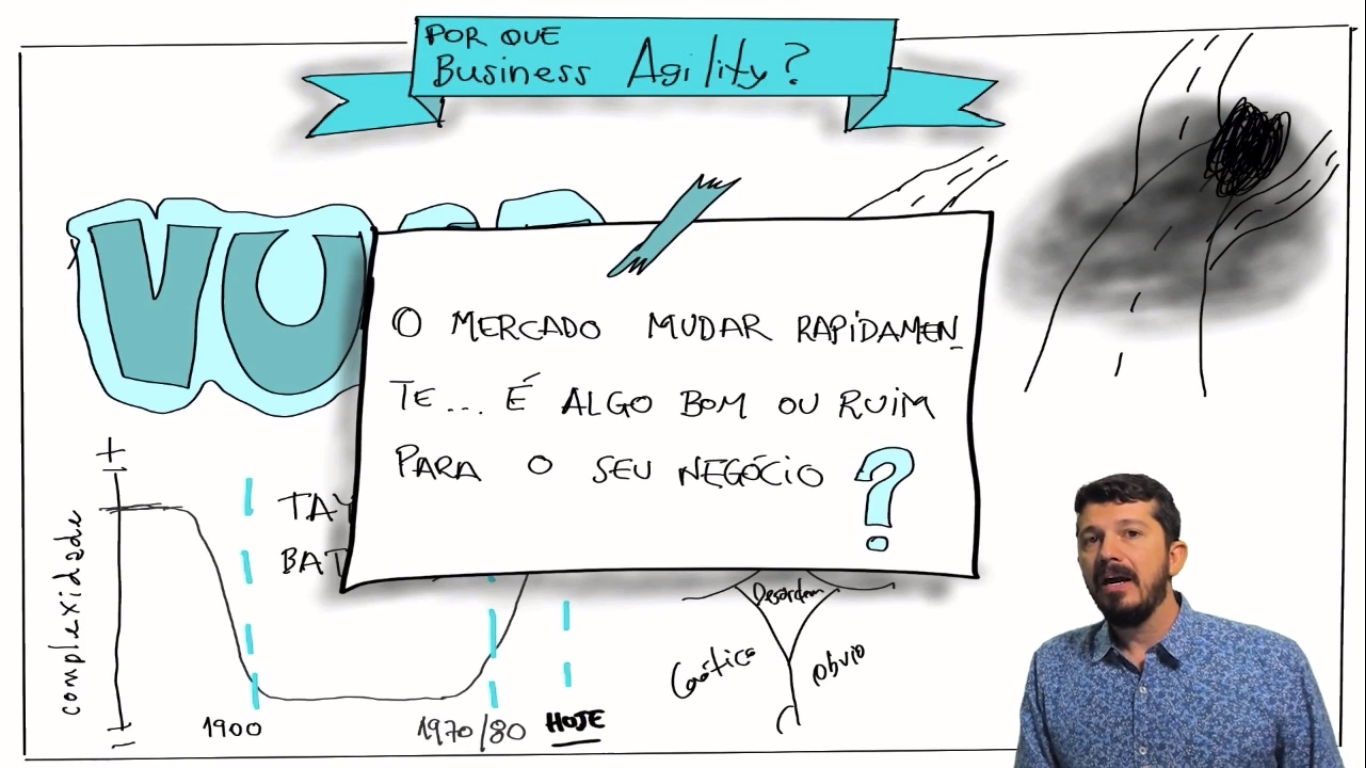 POR QUE
Business Agility?
VU
O MERCADO MUDAR RAPIDAMEN
TE... É ALGO BOM OU RUIM
PARA O SEU NEGÓCIO ?
+
complexidade
TAY
BAT
1900
1970/80
HOJE
Desordem
Caótico
Obvio